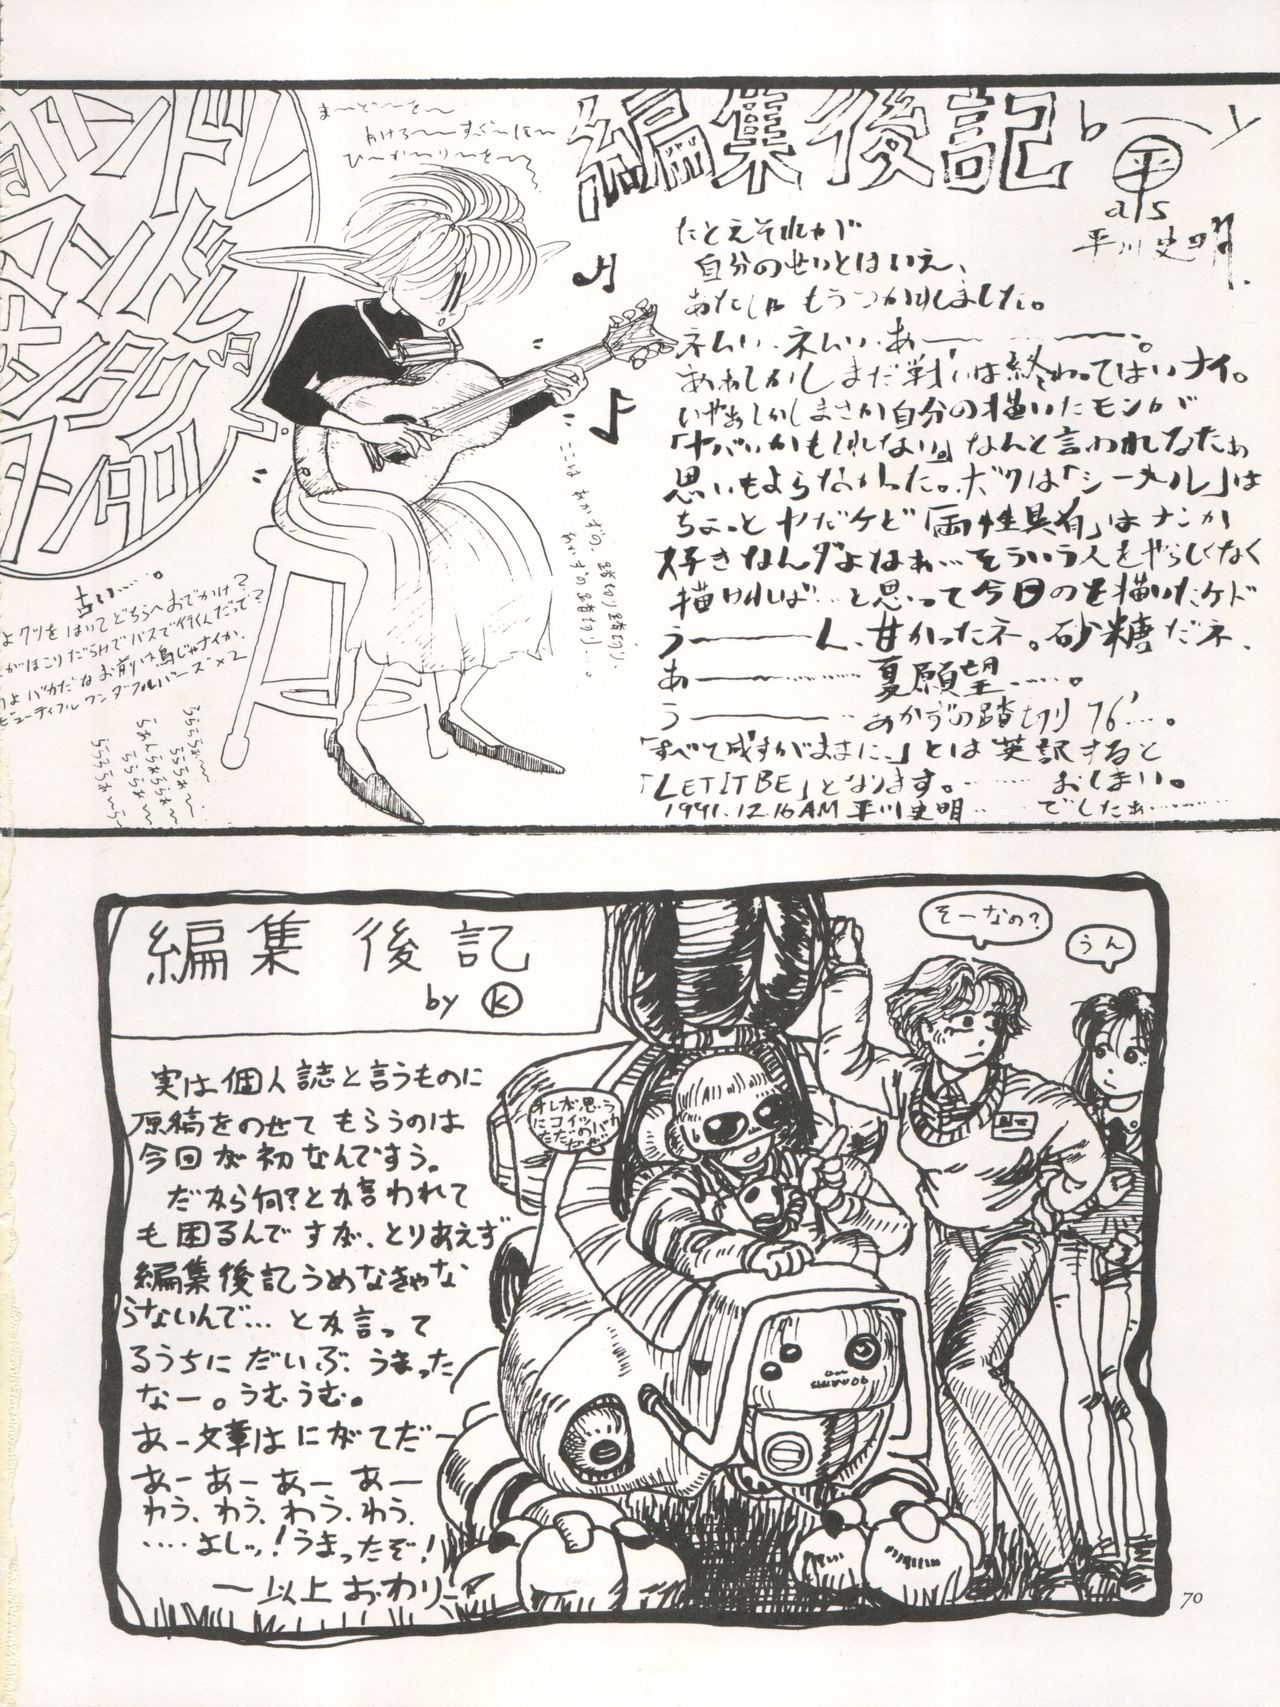 編集後記
by ㊉
a/s
平川史明.
たとえそれが
自分のせいとはいえ、
あたしゃもうつかれました。
ネムい、ネムい、あ———。
あぁしかしまだ戦いは終わってはいナイ。
いやぁしかしまさか自分の描いたモンが
「ヤバいかもしれない。」なんて言われなたぁ
思いもよらなかった。ボクは「シーメル」は
ちょっとヤだケど「両性具有」はナンか
好きなんダよなぁ…そういう人をやらしくなく
描ければ…と思って今日のを描いたケド
う———ん、甘かったネ。砂糖だネ、
あ———夏願望……。
う———あかずの踏切り76'…。
「すべて成すがままに、」とは英訳すると
「LET IT BE」となります。……… おしまい。
1991.12.16AM 平川史明… でしたぁ………
ま〜ど〜を〜
あけろ〜〜すご〜は〜
ひ〜か〜り〜を〜
ここは あかずの、踏切り踏切り、
あかずの踏切り…。
古い…。
よクツをはいてどちらへおでかけ?
がほこりだらけでバスで行くんだって?
よバカだなお前は鳥じゃナイか、
ビューティフルワンダフルバーズ×2
編集後記
by Ⓚ
実は個人誌と言うものに
原稿をのせてもらうのは
今回が初なんですう。
だから何?とか言われて
も困るんですが、とりあえず
編集後記うめなきゃな
らないんで…とか言って
るうちにだいぶうまった
なー。うむうむ。
あー文章はにがてだー
あーあーあーあー
わう、わう、わう、わう、
‥‥よしッ!うまったぞ!
—以上おわり—
オレが思う
にコイツバカ
そーなの?
うん
70